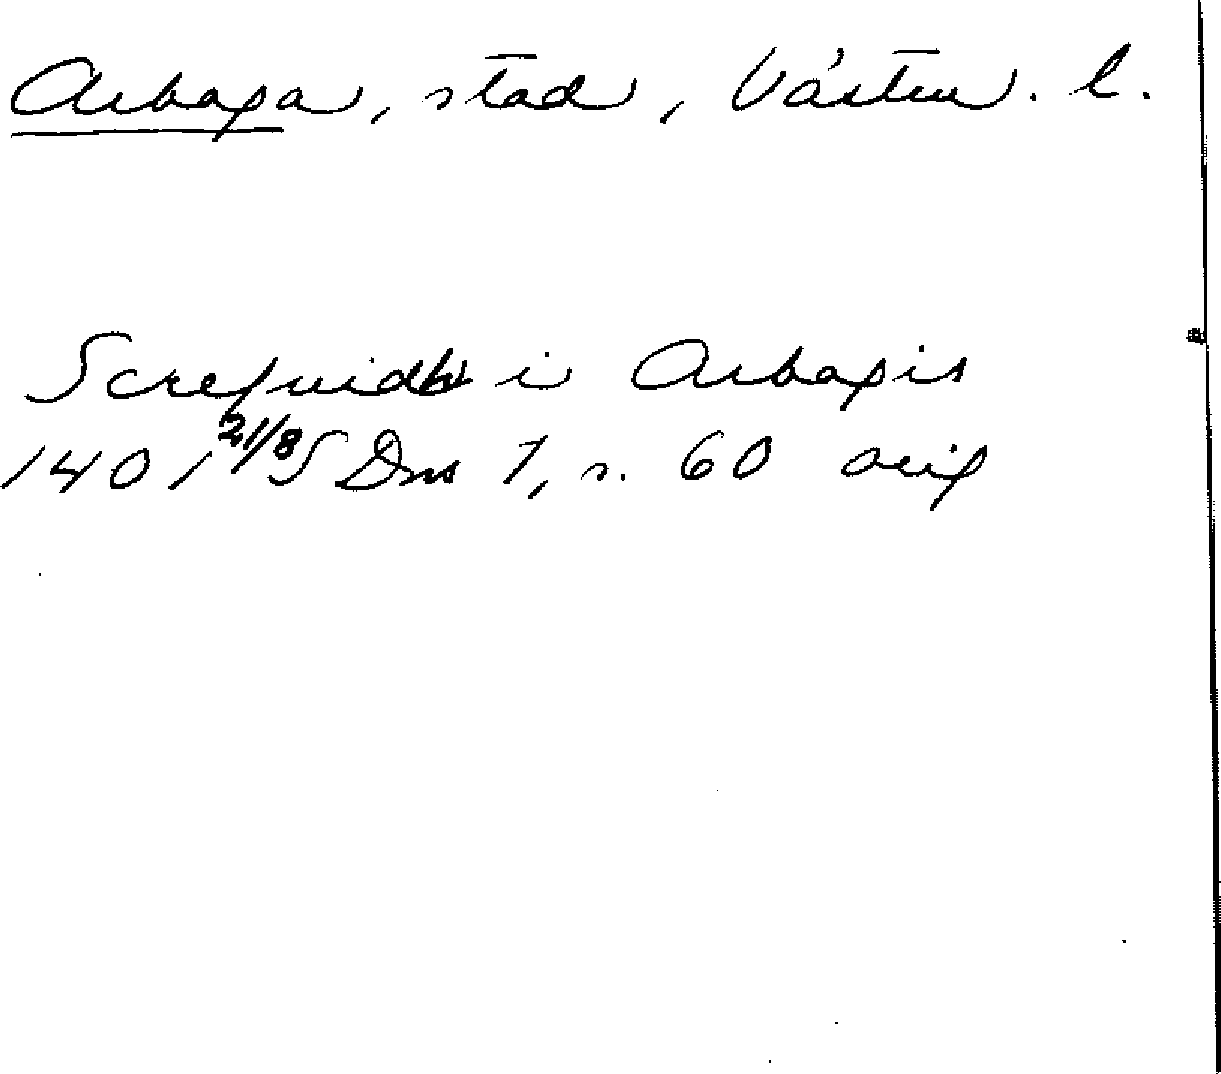 Arboga, stad, Västm. l.
Screfuidh i Arbogis
1401 21/8 SDns 1, s. 60 orig